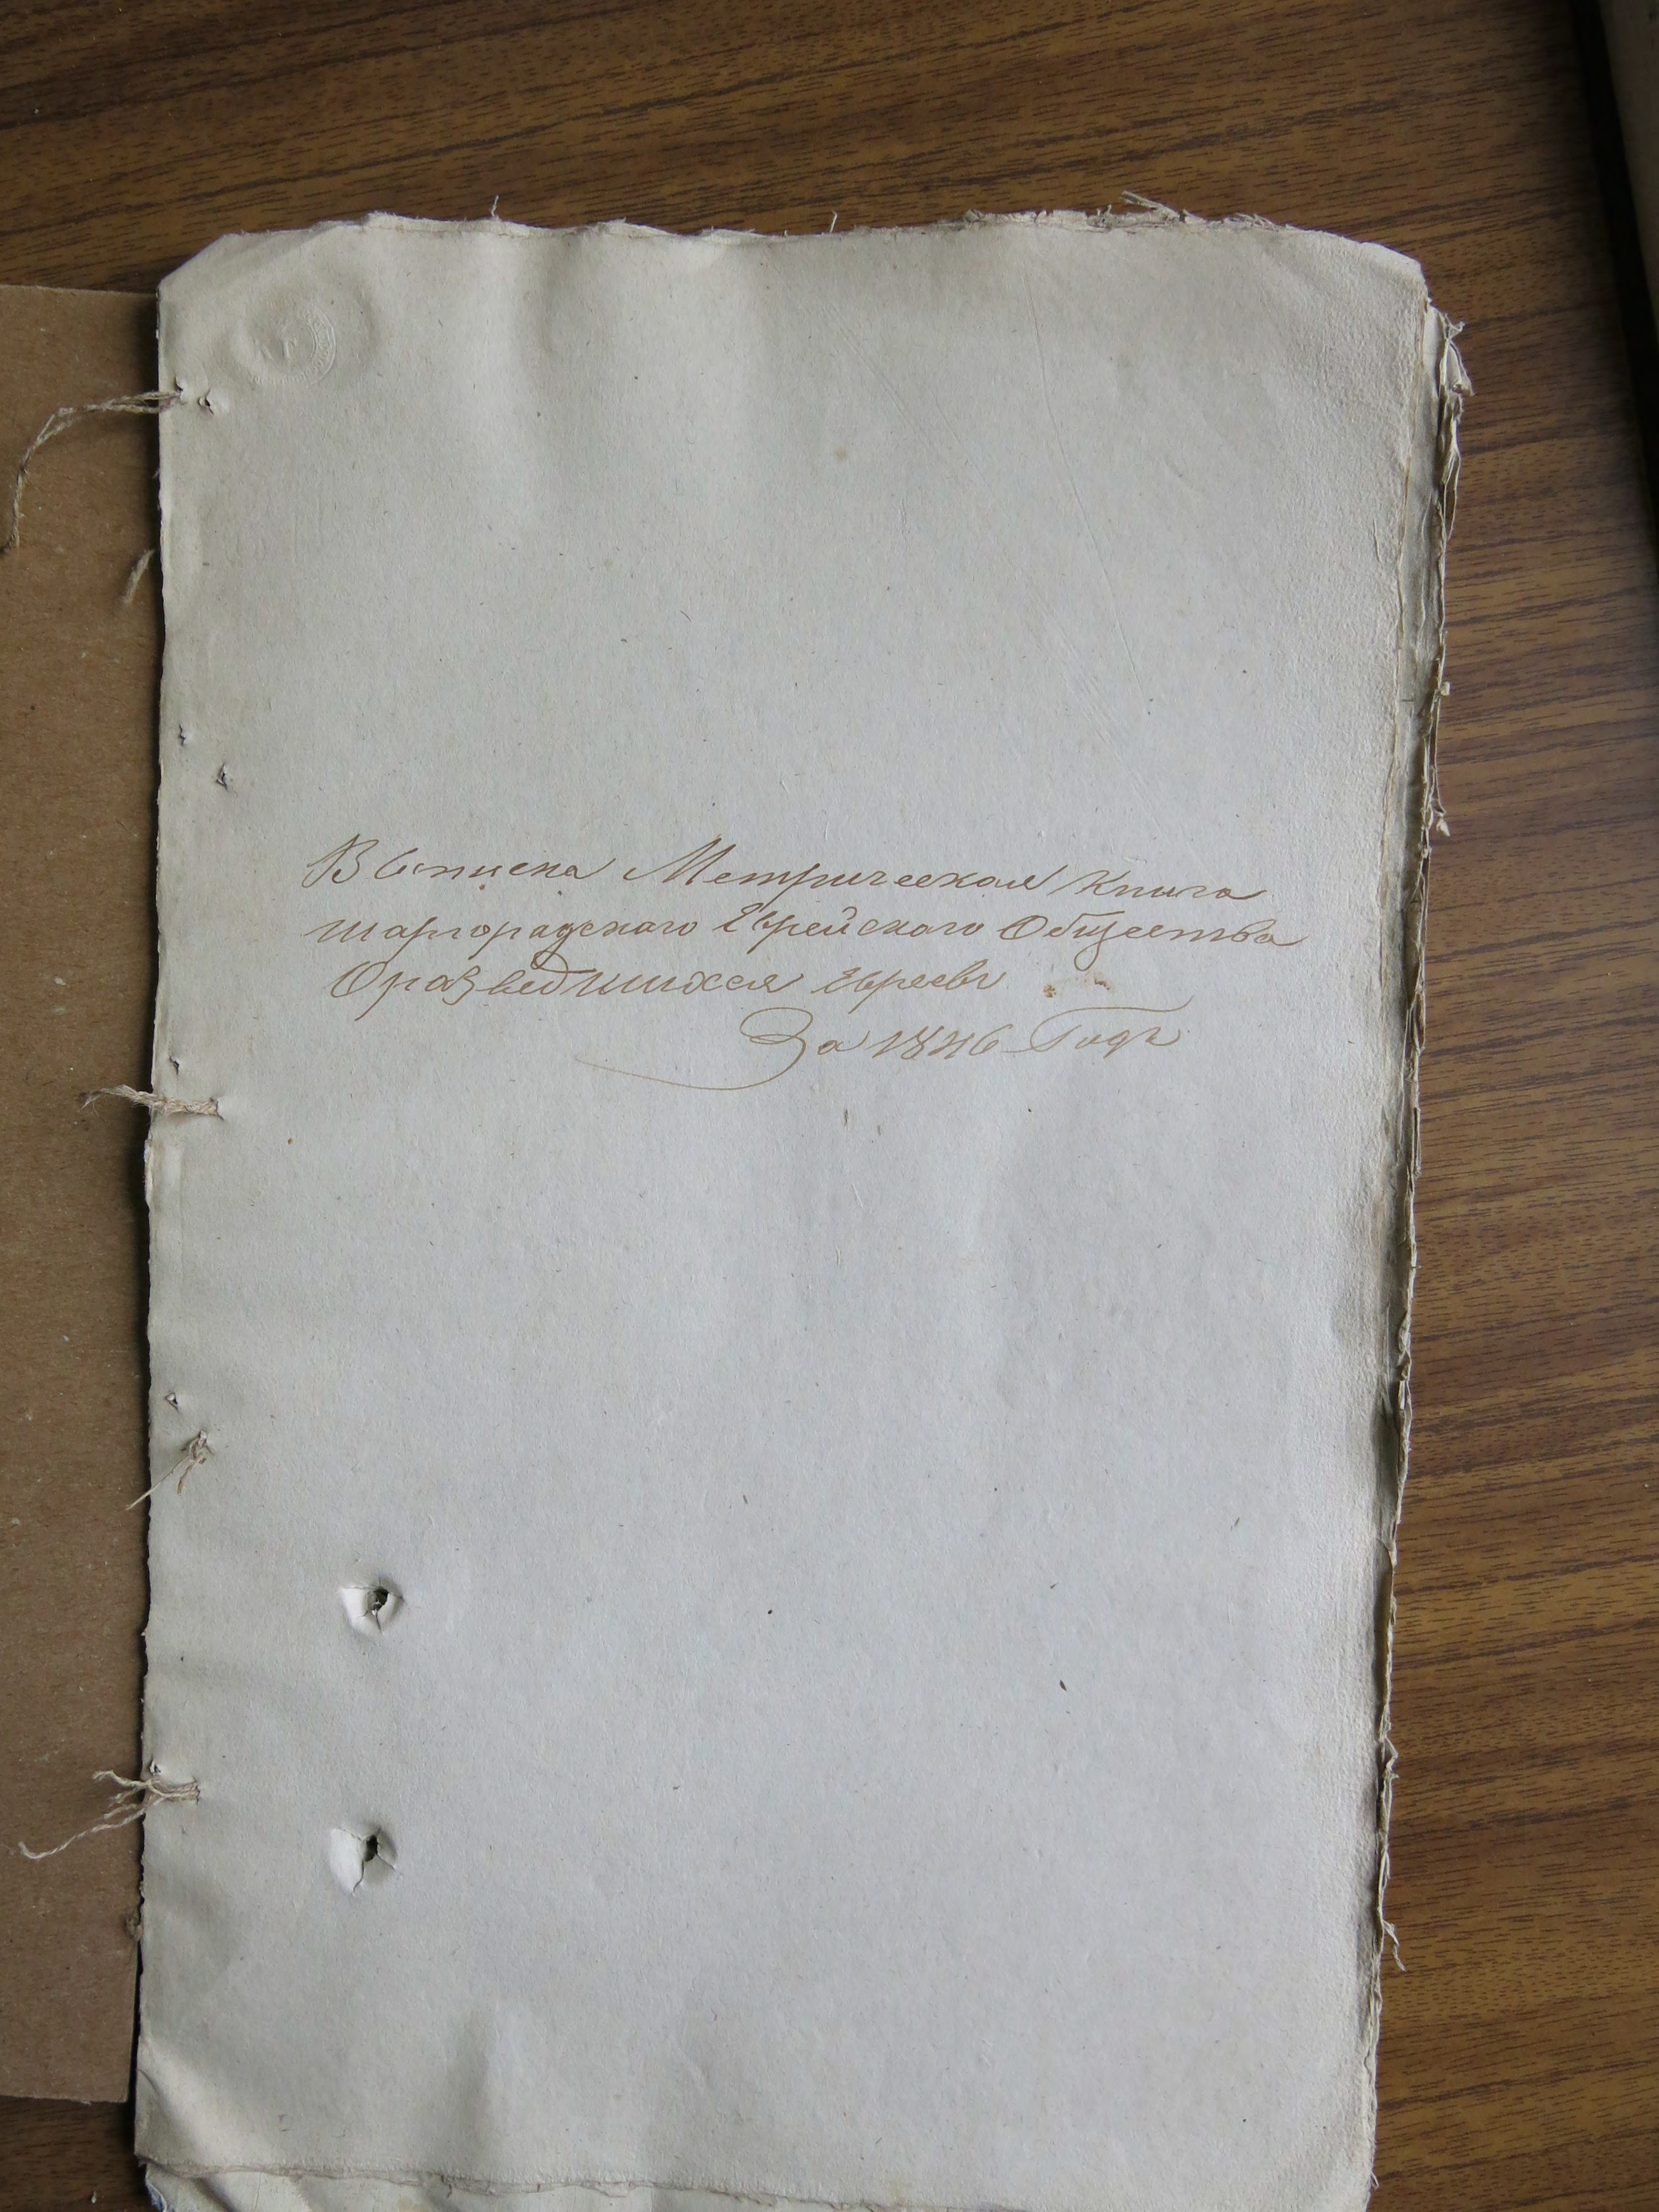 Выписка Метрическая Книга
шаргорадскаго Еврейскаго Общества
О разведшихся Евреевъ
За 1846 Годъ